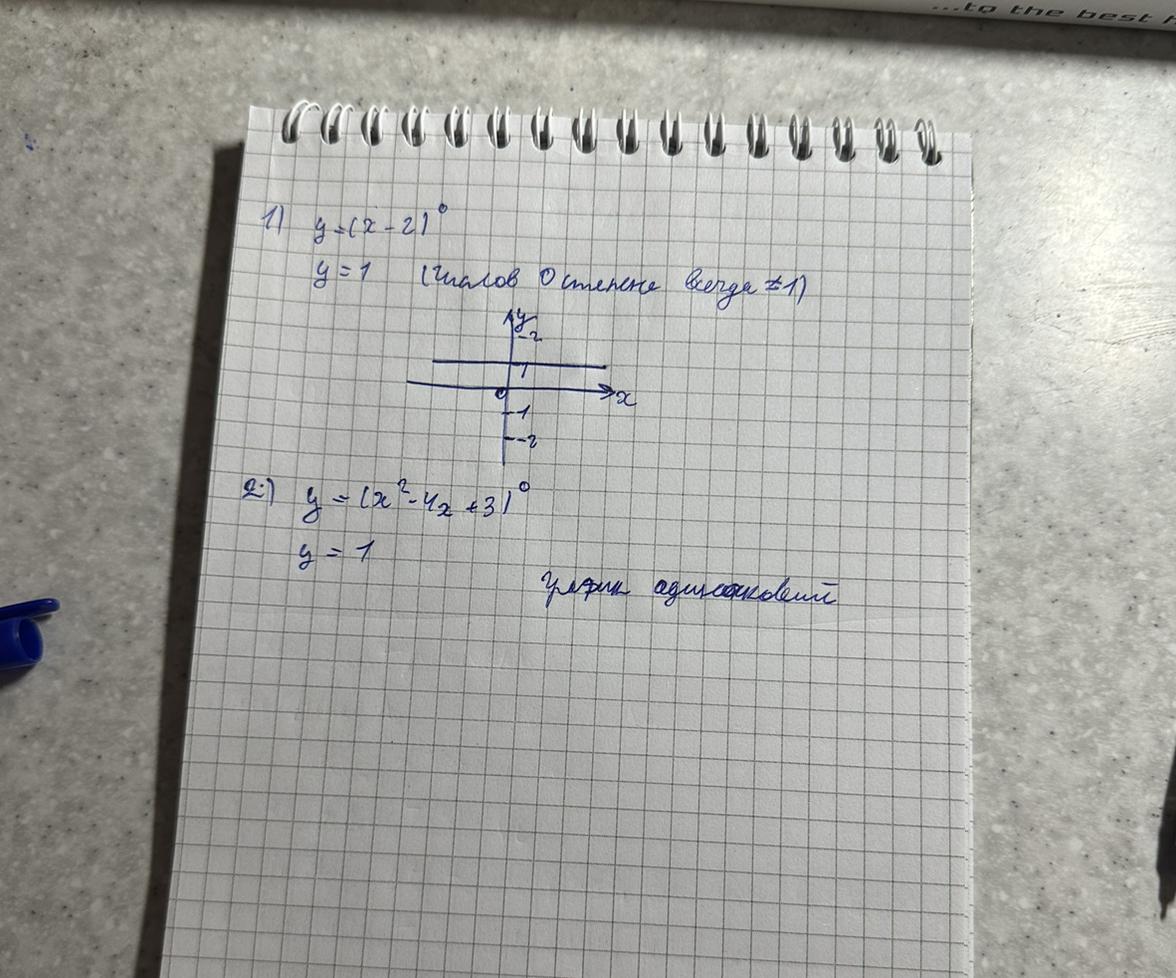 ...to the best
1) y=(x-2)⁰
y=1 (число в 0 степени всегда =1)
y
2
1
0
x
-1
-2
2) y=(x²-4x+3)⁰
y=1
график одинаковый